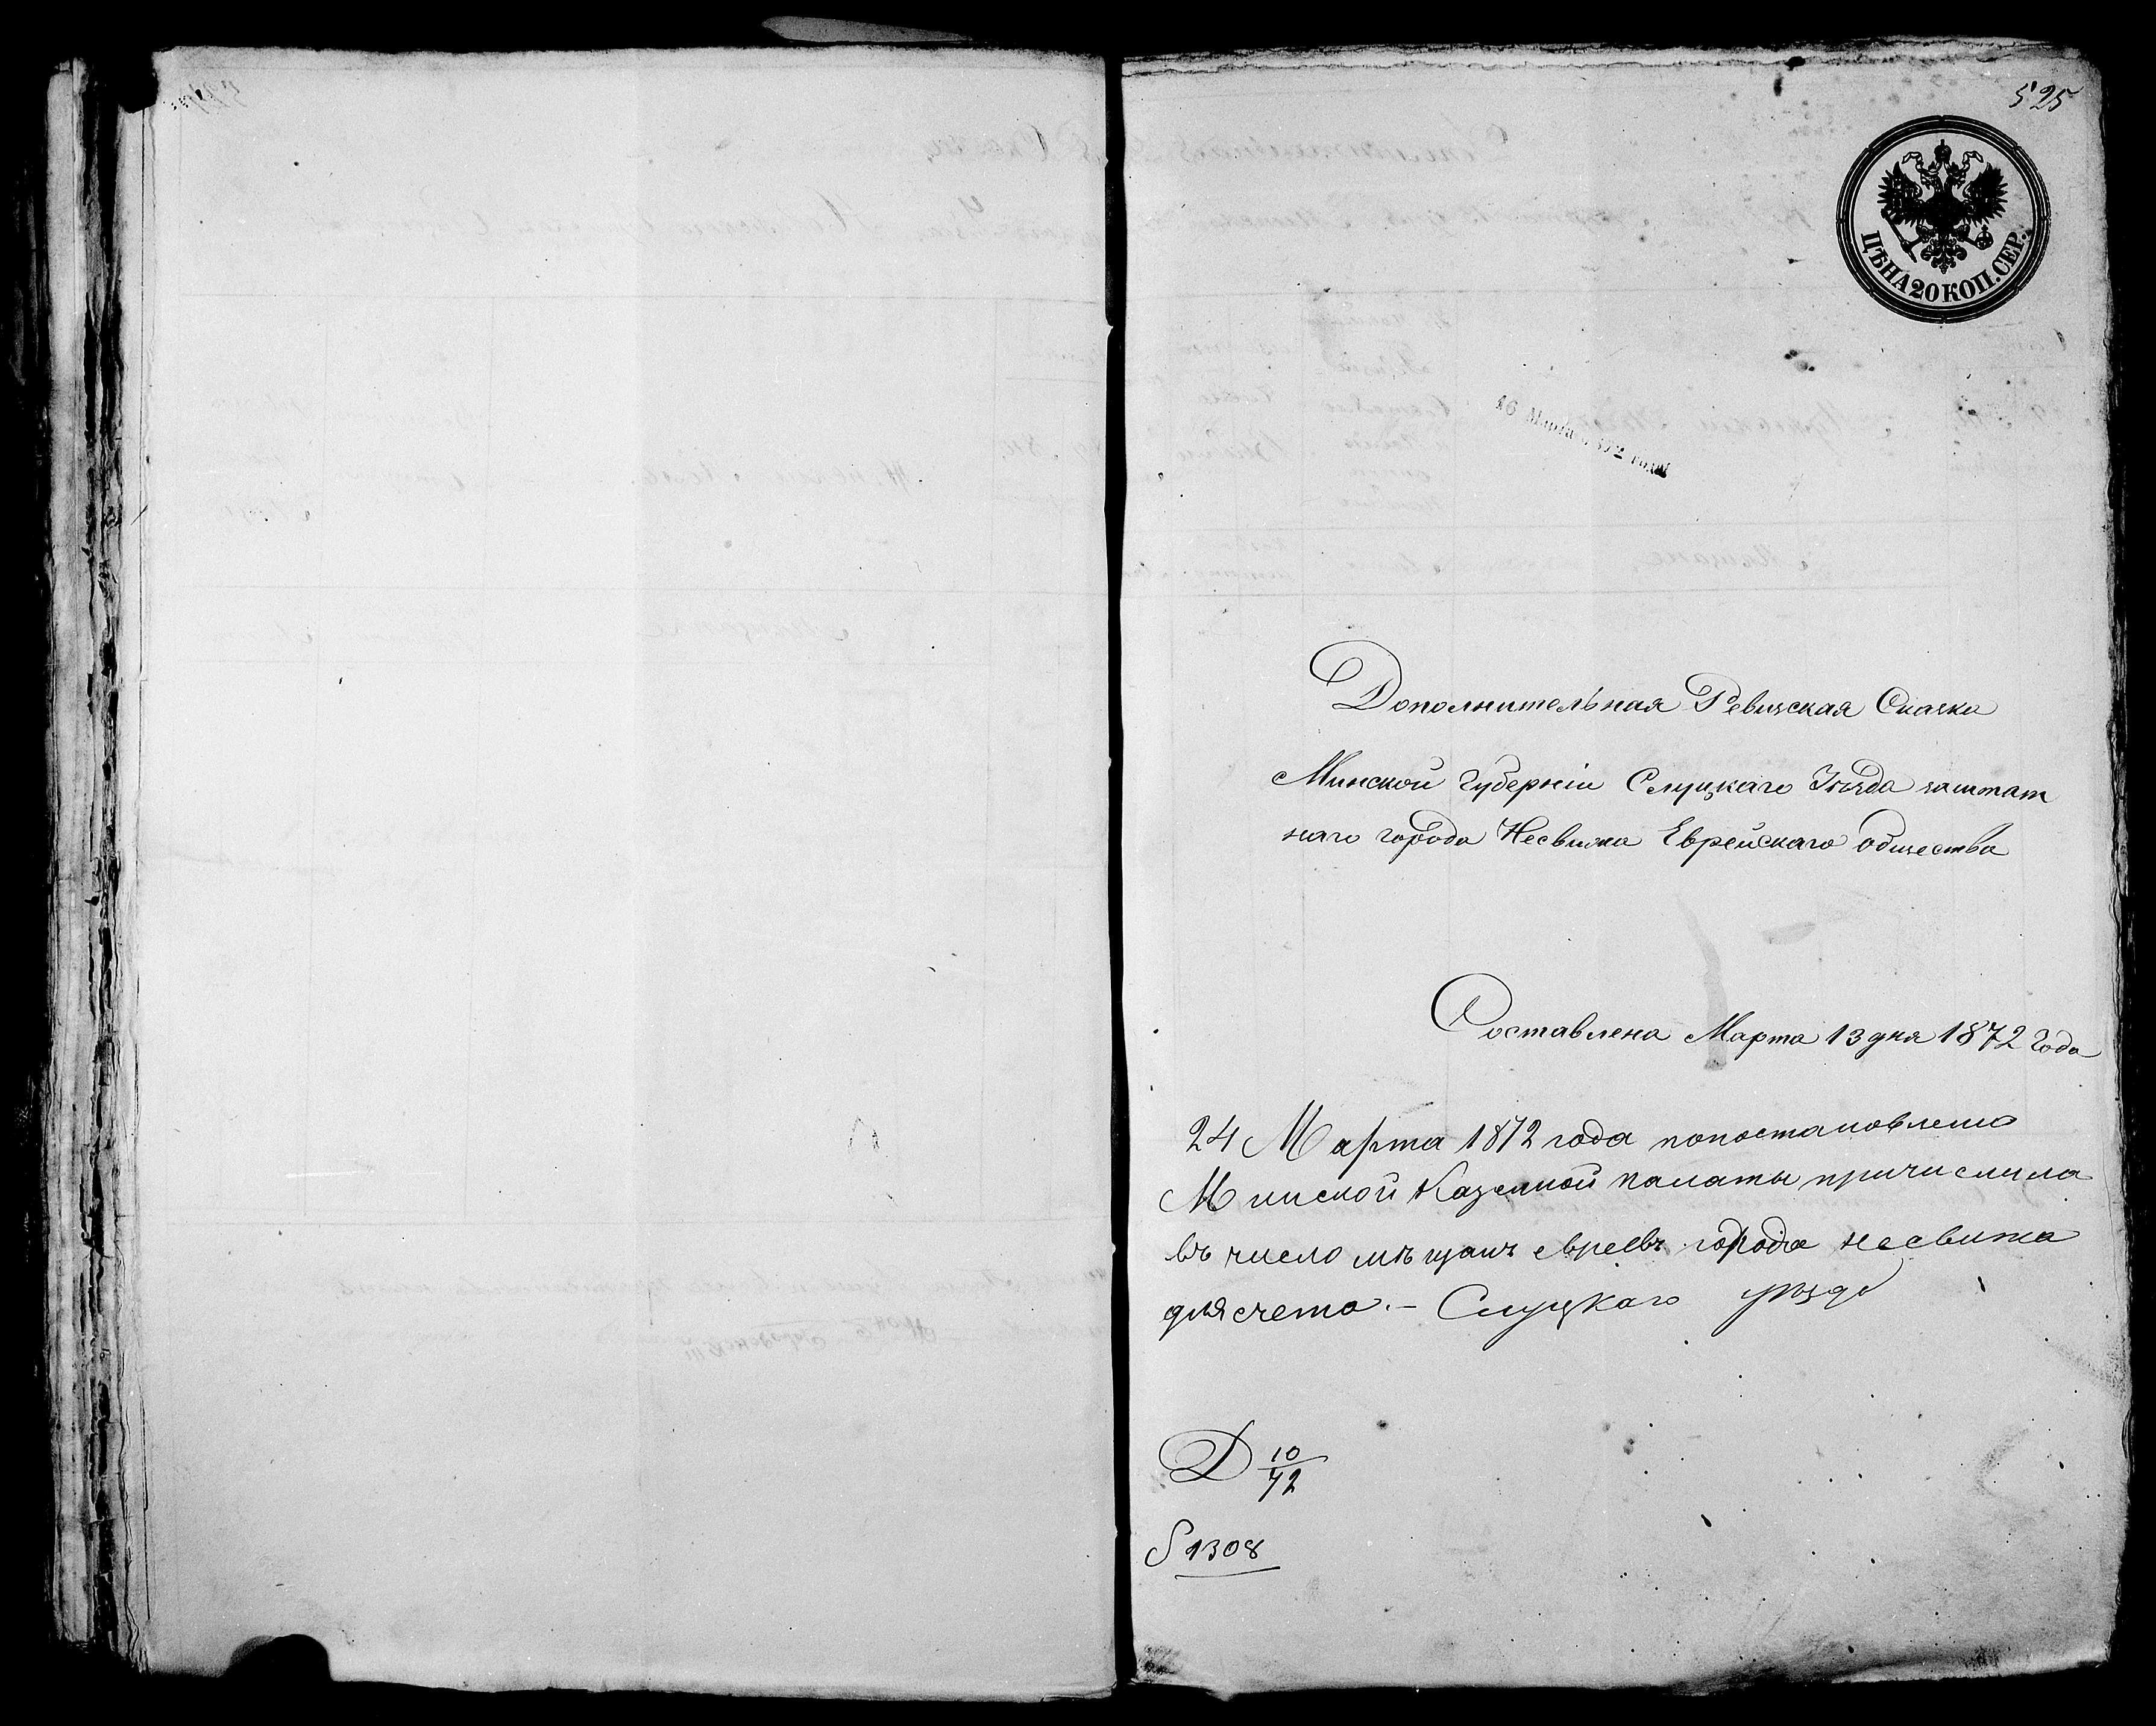 525
ЦѢНА 20 КОП. СЕР.
16 Марта 1872 года
Дополнительная Ревизская Сказка
Минской Губерніи Слуцкаго Уѣзда заштат
наго города Несвижа Еврейскаго общества
Составлена Марта 13 дня 1872 Года
24 Марта 1872 года попостановлено
Минской Казенной палаты причислила
въ число мѣщанъ евреевъ города несвижа
для счета. – Слуцкаго уѣзда
D 10/72
S 1308